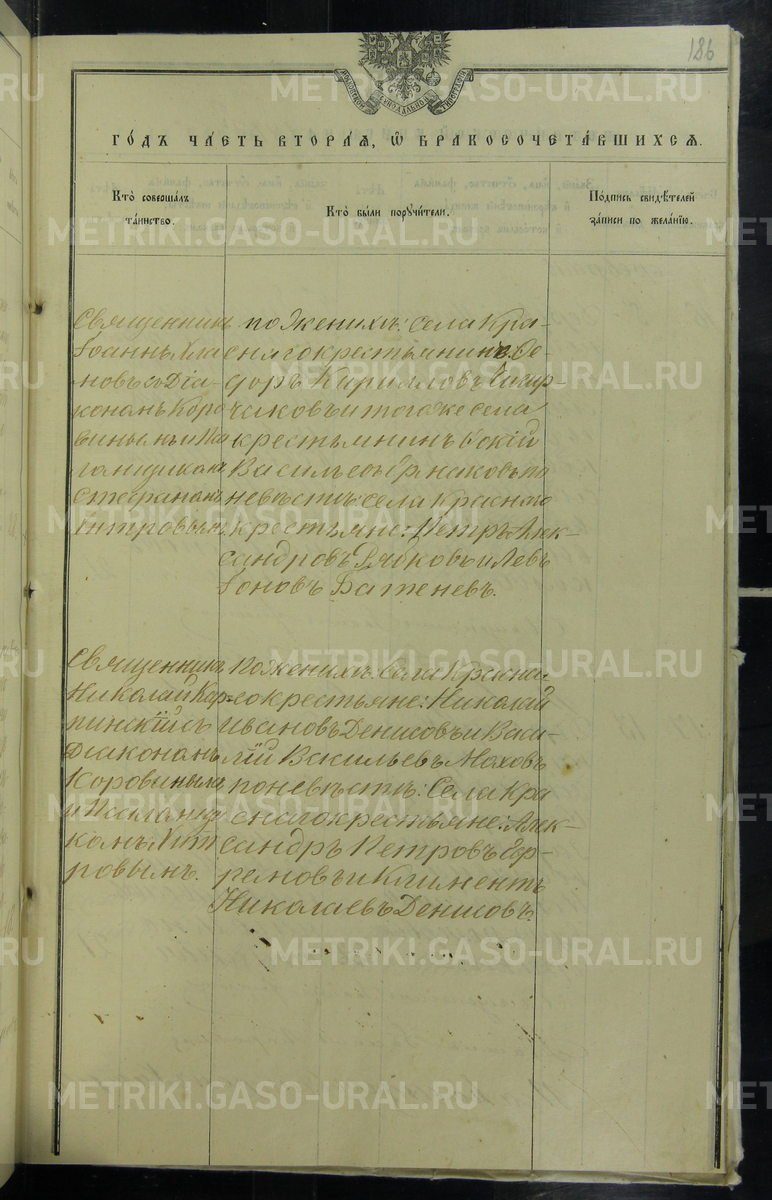 186
МОСКОВСКОЙ СИНОДАЛЬНОЙ ТИПОГРАФІИ
ГОДЪ ЧАСТЬ ВТОРАЯ, Ѡ БРАКОСОЧЕТАВШИХСЯ.
Кто совершалъ
таинство.
Кто были поручители.
Подпись свидѣтелей
записи по желанію.
Священникъ
Іоаннъ
новъ съ Діа-
кономъ Коро
винымъ и Пса
ломщикомъ
Стефаномъ
Хитровымъ
по женихѣ: села Кра-
снаго крестьянинъ Ѳе-
доръ Кирилловъ
и того же села
крестьянинъ
Васильевъ по
невѣстѣ: села Краснаго
крестьяне: Петръ Алек-
сандровъ и Левъ
Іоновъ Баженевъ.
Священникъ
Николай Кар-
пинскій съ
Діакономъ
Коровинымъ
и Псаломщи
комъ Хит
ровымъ.
По женихѣ: Села Краснa-
го крестьяне: Николай
Ивановъ Денисовъ и Васи-
лій Васильевъ Маховъ
по невѣстѣ: Села Кра
снаго крестьяне: Алек-
сандръ Петровъ Еф-
ремовъ и Климентъ
Николаевъ Денисовъ.
METRIKI.GASO-URAL.RU